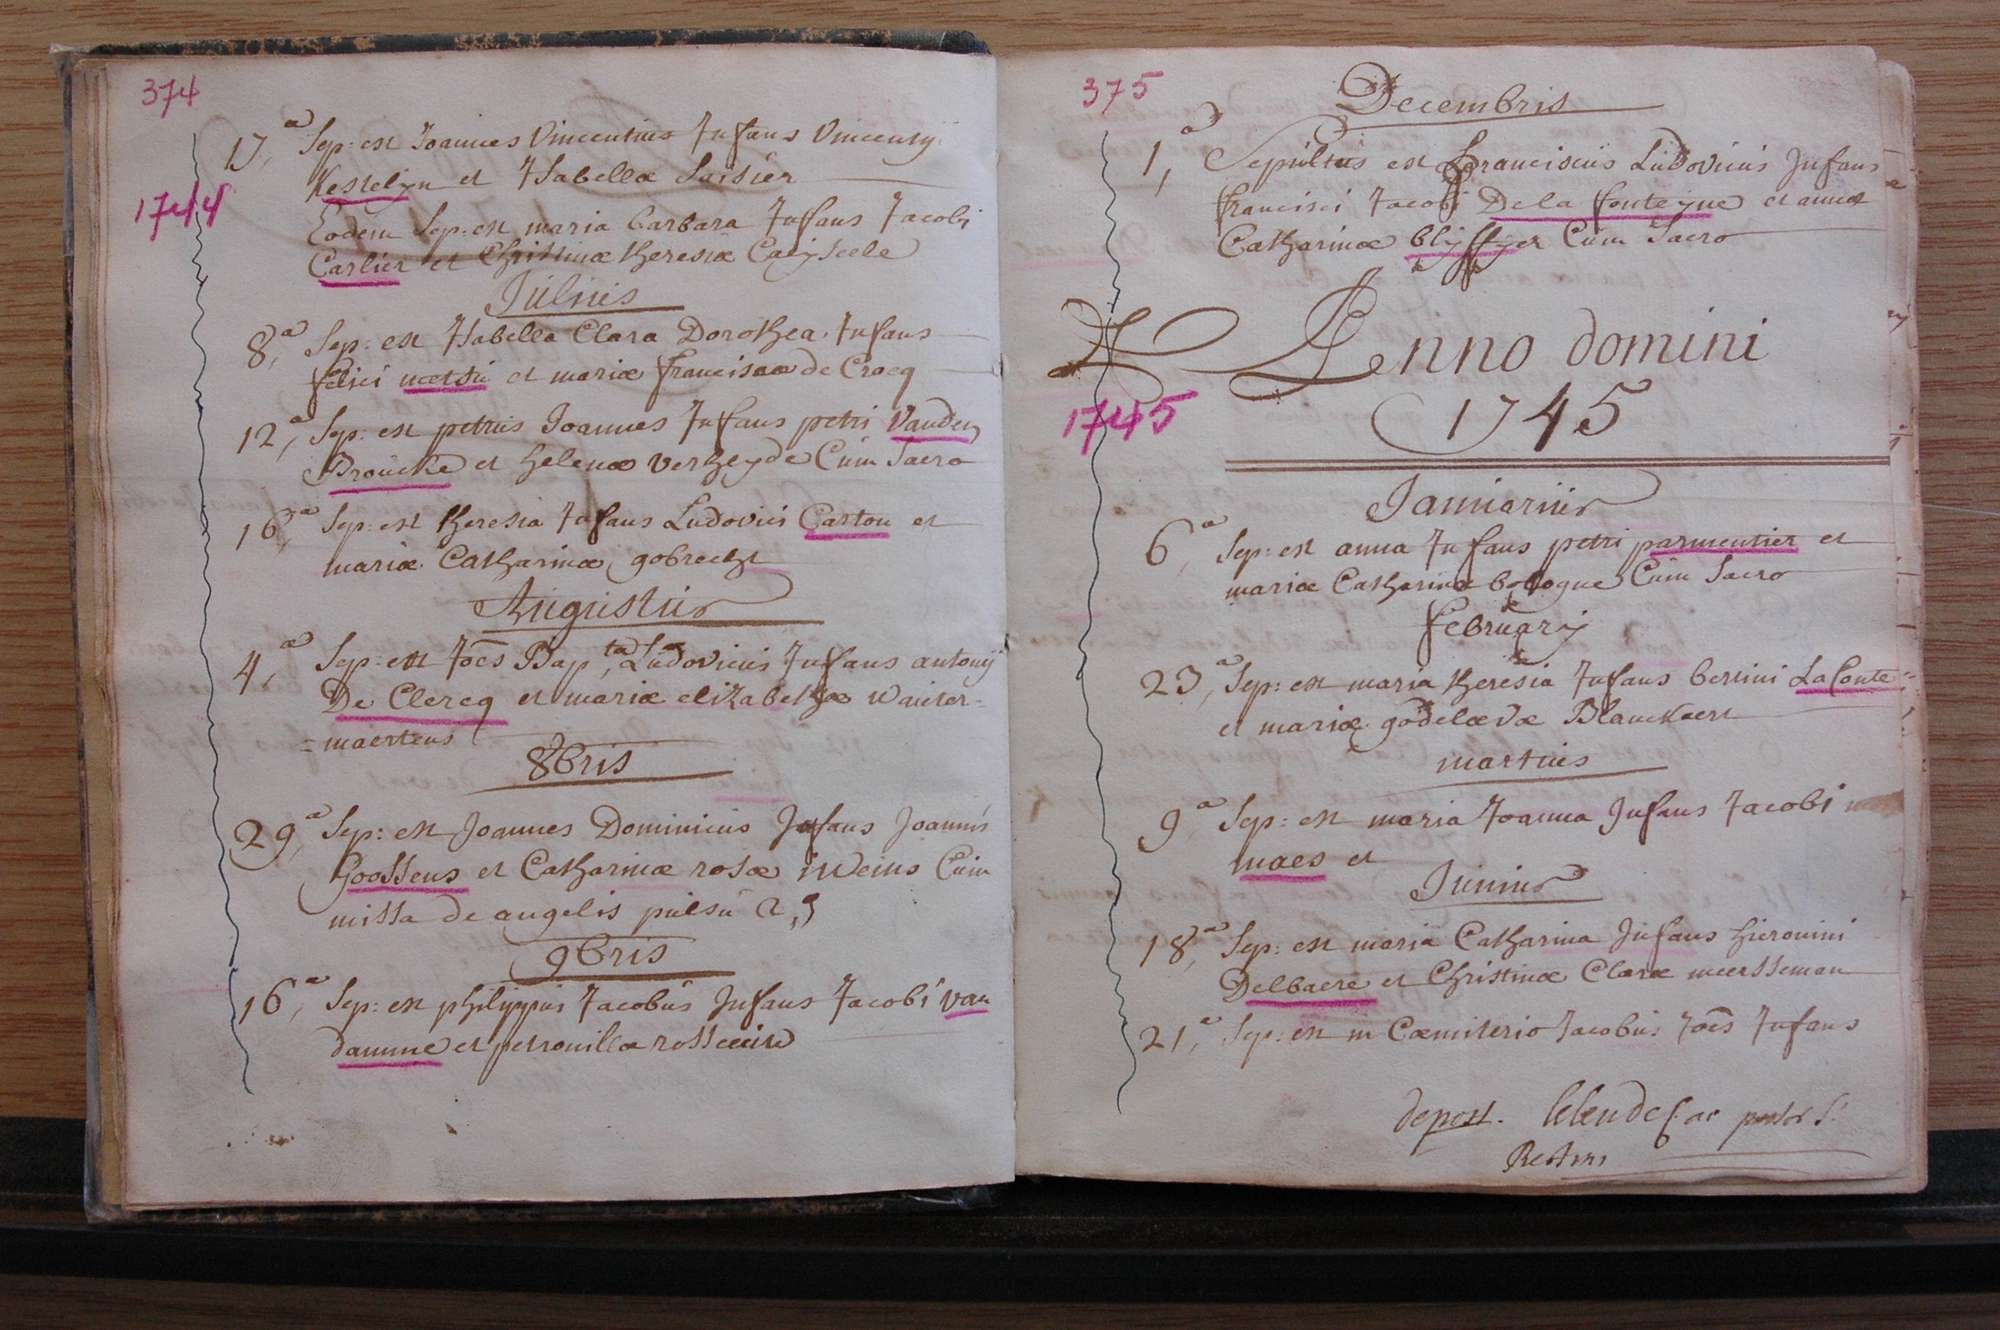 374
17,a Sep: est Joannes Vincentius Infans Vincentij
Kestelijn et Isabellæ Saisier
1744
Eodem Sep: est maria barbara Infans Jacobi
Carlier et Christinæ theresiæ Caijseele
Julius
8,a Sep: est Isabella Clara Dorothea Infans
felici et mariæ franciscæ de Crocq
12,a Sep: est petrus Joannes Infans petri Vanden
Broucke et helenæ verheyde Cum Sacro
16,a Sep: est theresia Infans Ludovici Carton et
mariæ Catharinæ gobrecht
Augustus
4,a Sep: est Joes Bapta, Ludovicus Infans antonij
De Clercq et mariæ elizabethæ wauter=
=maertens
8bris
29,a Sep: est Joannes Dominicus Infans Joannis
Goossens et Catharinæ rosæ inWeins Cum
missa de angelis pulsu 2,5
9bris
16,a Sep: est philippus Jacobus Infans Jacobi van
damme et petronillæ
375
Decembris
1,a Sepultus est franciscus Ludovicus Infans
francisci Jacobi De la fonteyne et annæ
Catharinæ Cum Sacro
Anno domini
1745
1745
Januarius
6,a Sep: est anna Infans petri parmentier et
mariæ Catharinæ bologne Cum Sacro
februarij
23,a Sep: est maria theresia Infans bertini La Conte=
et mariæ godelævæ Blanckaert
martius
9,a Sep: est maria Joanna Infans Jacobi
maes et
Junius
18,a Sep: est maria Catharina Infans hieronimi
Delbaere et Christinæ Claræ meersseman
21,a Sep: est in Cæmiterio Jacobus Joes Infans